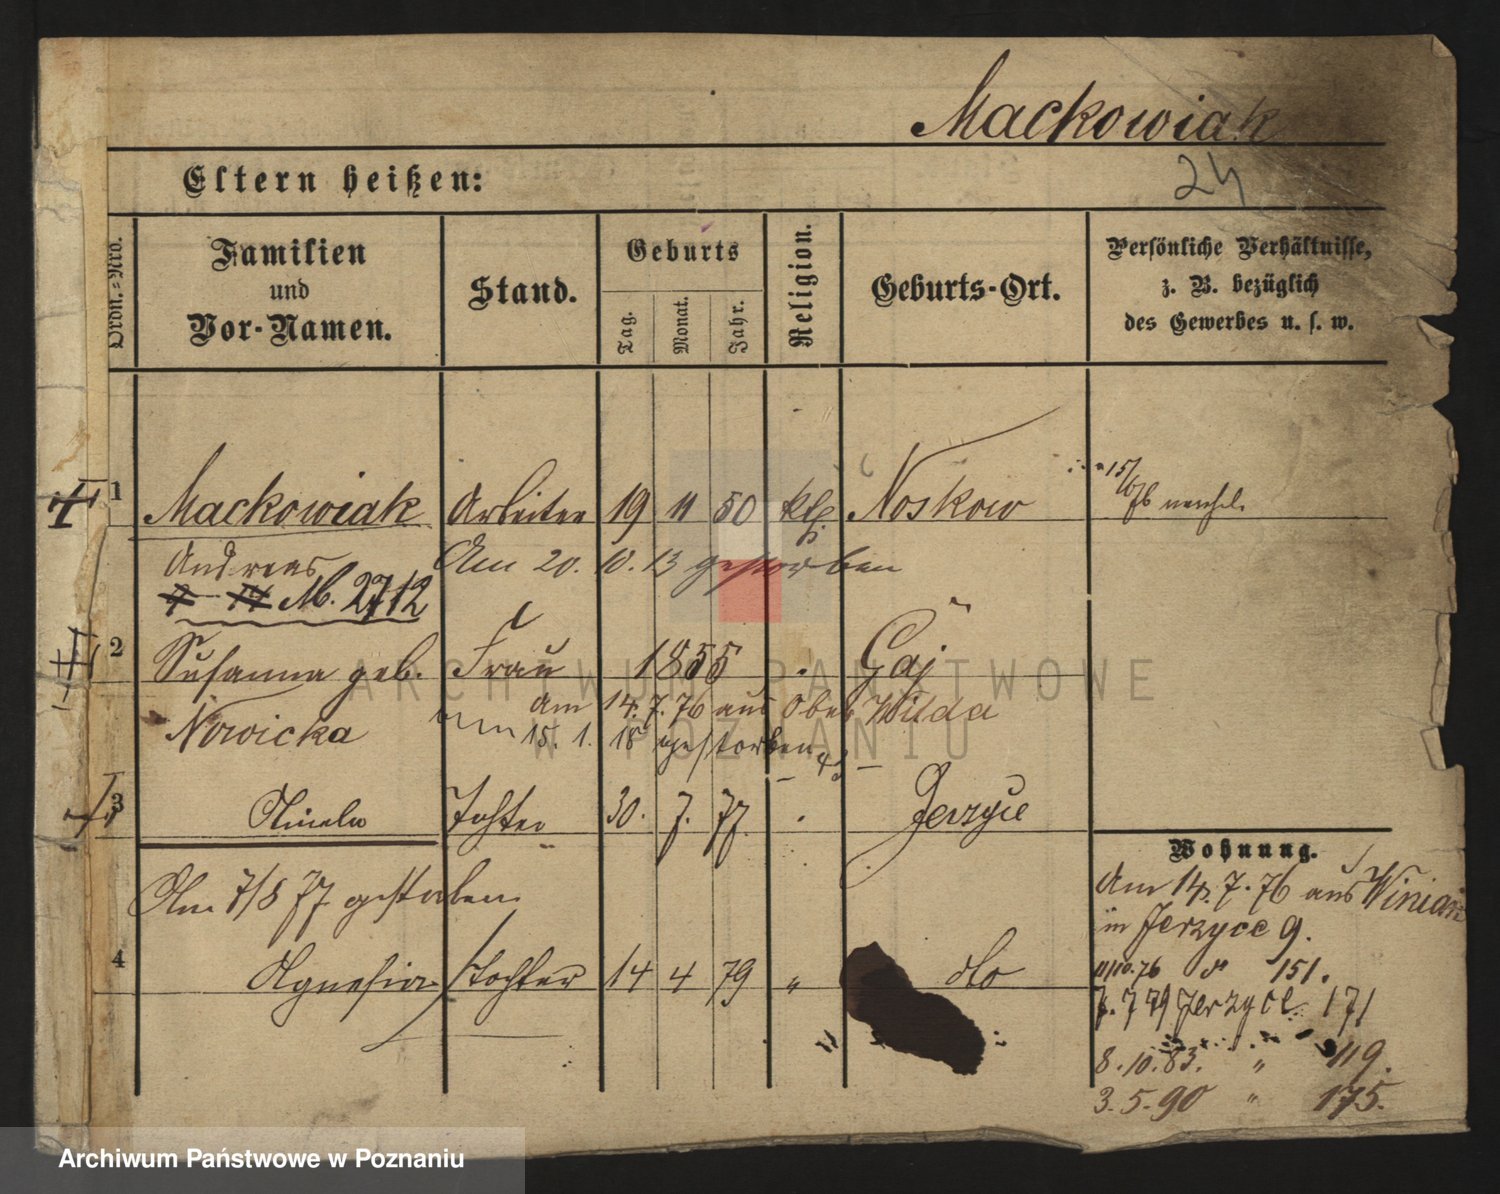 Mackowiak
24
Eltern heißen:
Ordn.-Nro.
Familien
und
Vor-Namen.
Stand.
Geburts
Tag.
Monat.
Jahr.
Religion.
Geburts-Ort.
Persönliche Verhältnisse,
z. B. bezüglich
des Gewerbes u. s. w.
1 Mackowiak Arbeiter 19 11 50 kth Noskow 15/6 76
Andreas Am 20. 10. 13 gestorben
M. 2712
2 Susanna geb. Frau 1855 Gaj
Nowicka am 14.7.76 aus Ober Wilda
am 15. 1. 18 gestorben
3 Tochter 30. 7. 77 Jerzyce
Am 7/8 77 gestorben
4 Agnesia Tochter 14 4 79 " dto
Wohnung.
Am 14.7.76 aus Winiari
in Jerzyce 9.
11/10.76 do 151.
7.7 79 Jerzyce 171
8.10.83. " 119.
3.5.90 " 175.
ARCHIWUM PAŃSTWOWE
W POZNANIU
Archiwum Państwowe w Poznaniu